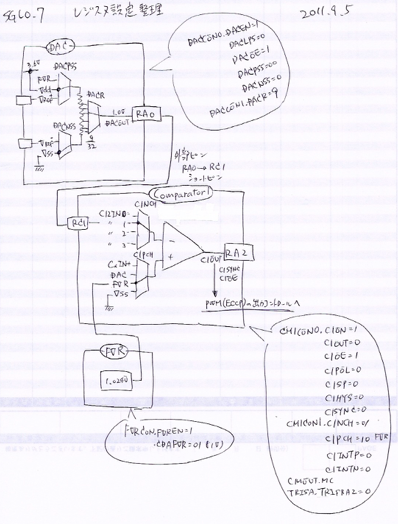 SGLO.7 レジスタ設定整理 2011.9.5
DAC
DACPSS
FVR
Vdd
Vref
DACR
DACNSS
Vss
LOE
DACOUT
9/32
RA0
DACCON0.DACEN=1
DACLPS=0
DACOE=1
DACPSS=00
DACNSS=0
DACCON1.DACR=9
外部ピン
RA0→RC1
ショートピン
Comparator1
RC1
C12IN0-
1-
2-
3-
C1NCH
C1PCH
DAC
FVR
Vss
-
+
C1OUT
C1SYNC
C1OE
RA2
PWM(ECCP)
FVR
1.024V
FVRCON.FVREN=1
CDAFVR=01 (1x)
CM1CON0.C1ON=1
C1OUT=0
C1OE=1
C1POL=0
C1SP=0
C1HYS=0
C1SYNC=0
CM1CON1.C1NCH=01
C1PCH=10 FVR
C1INTP=0
C1INTN=0
CMOUT.MC
TRISA.TRISA2=0